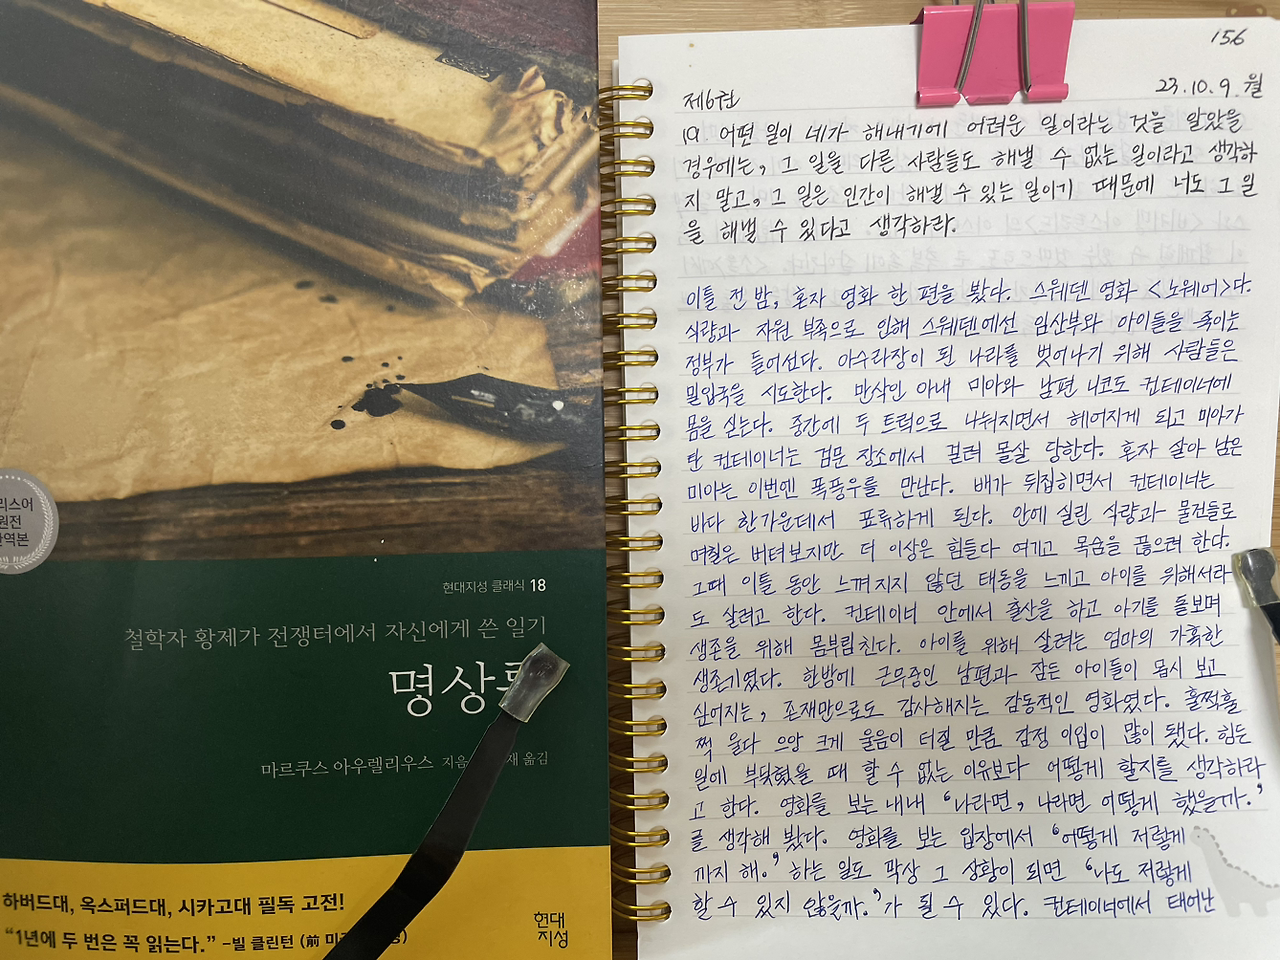 리스어
원전
역본
현대지성 클래식 18
철학자 황제가 전쟁터에서 자신에게 쓴 일기
명상
마르쿠스 아우렐리우스 지음 재 옮김
하버드대, 옥스퍼드대, 시카고대 필독 고전!
“1년에 두 번은 꼭 읽는다.” –빌 클린턴 (前 미
현대
지성
156
제6권
23.10.9.월
19. 어떤 일이 네가 해내기에 어려운 일이라는 것을 알았을
경우에는, 그 일을 다른 사람들도 해낼 수 없는 일이라고 생각하
지 말고, 그 일은 인간이 해낼 수 있는 일이기 때문에 너도 그 일
을 해낼 수 있다고 생각하라.
이틀 전 밤, 혼자 영화 한 편을 봤다. 스웨덴 영화 <노웨어>다.
식량과 자원 부족으로 인해 스웨덴에선 임산부와 아이들을 죽이는
정부가 들어선다. 아수라장이 된 나라를 벗어나기 위해 사람들은
밀입국을 시도한다. 만삭인 아내 미아와 남편 니코도 컨테이너에
몸을 싣는다. 중간에 두 트럭으로 나눠지면서 헤어지게 되고 미아가
탄 컨테이너는 검문 장소에서 걸려 몰살 당한다. 혼자 살아 남은
미아는 이번엔 폭풍우를 만난다. 배가 뒤집히면서 컨테이너는
바다 한가운데서 표류하게 된다. 안에 실린 식량과 물건들로
며칠은 버텨보지만 더 이상은 힘들다 여기고 목숨을 끊으려 한다.
그때 이틀 동안 느껴지지 않던 태동을 느끼고 아이를 위해서라
도 살려고 한다. 컨테이너 안에서 출산을 하고 아기를 돌보며
생존을 위해 몸부림친다. 아이를 위해 살려는 엄마의 가혹한
생존기였다. 한밤에 근무중인 남편과 잠든 아이들이 몹시 보고
싶어지는, 존재만으로도 감사해지는 감동적인 영화였다. 훌쩍훌
쩍 울다 으앙 크게 울음이 터질 만큼 감정 이입이 많이 됐다. 힘든
일에 부딪혔을 때 할 수 없는 이유보다 어떻게 할지를 생각하라
고 한다. 영화를 보는 내내 ‘나라면, 나라면 어떻게 했을까.’
를 생각해 봤다. 영화를 보는 입장에서 ‘어떻게 저렇게
까지 해.’ 하는 일도 막상 그 상황이 되면 ‘나도 저렇게
할 수 있지 않을까.’가 될 수 있다. 컨테이너에서 태어난